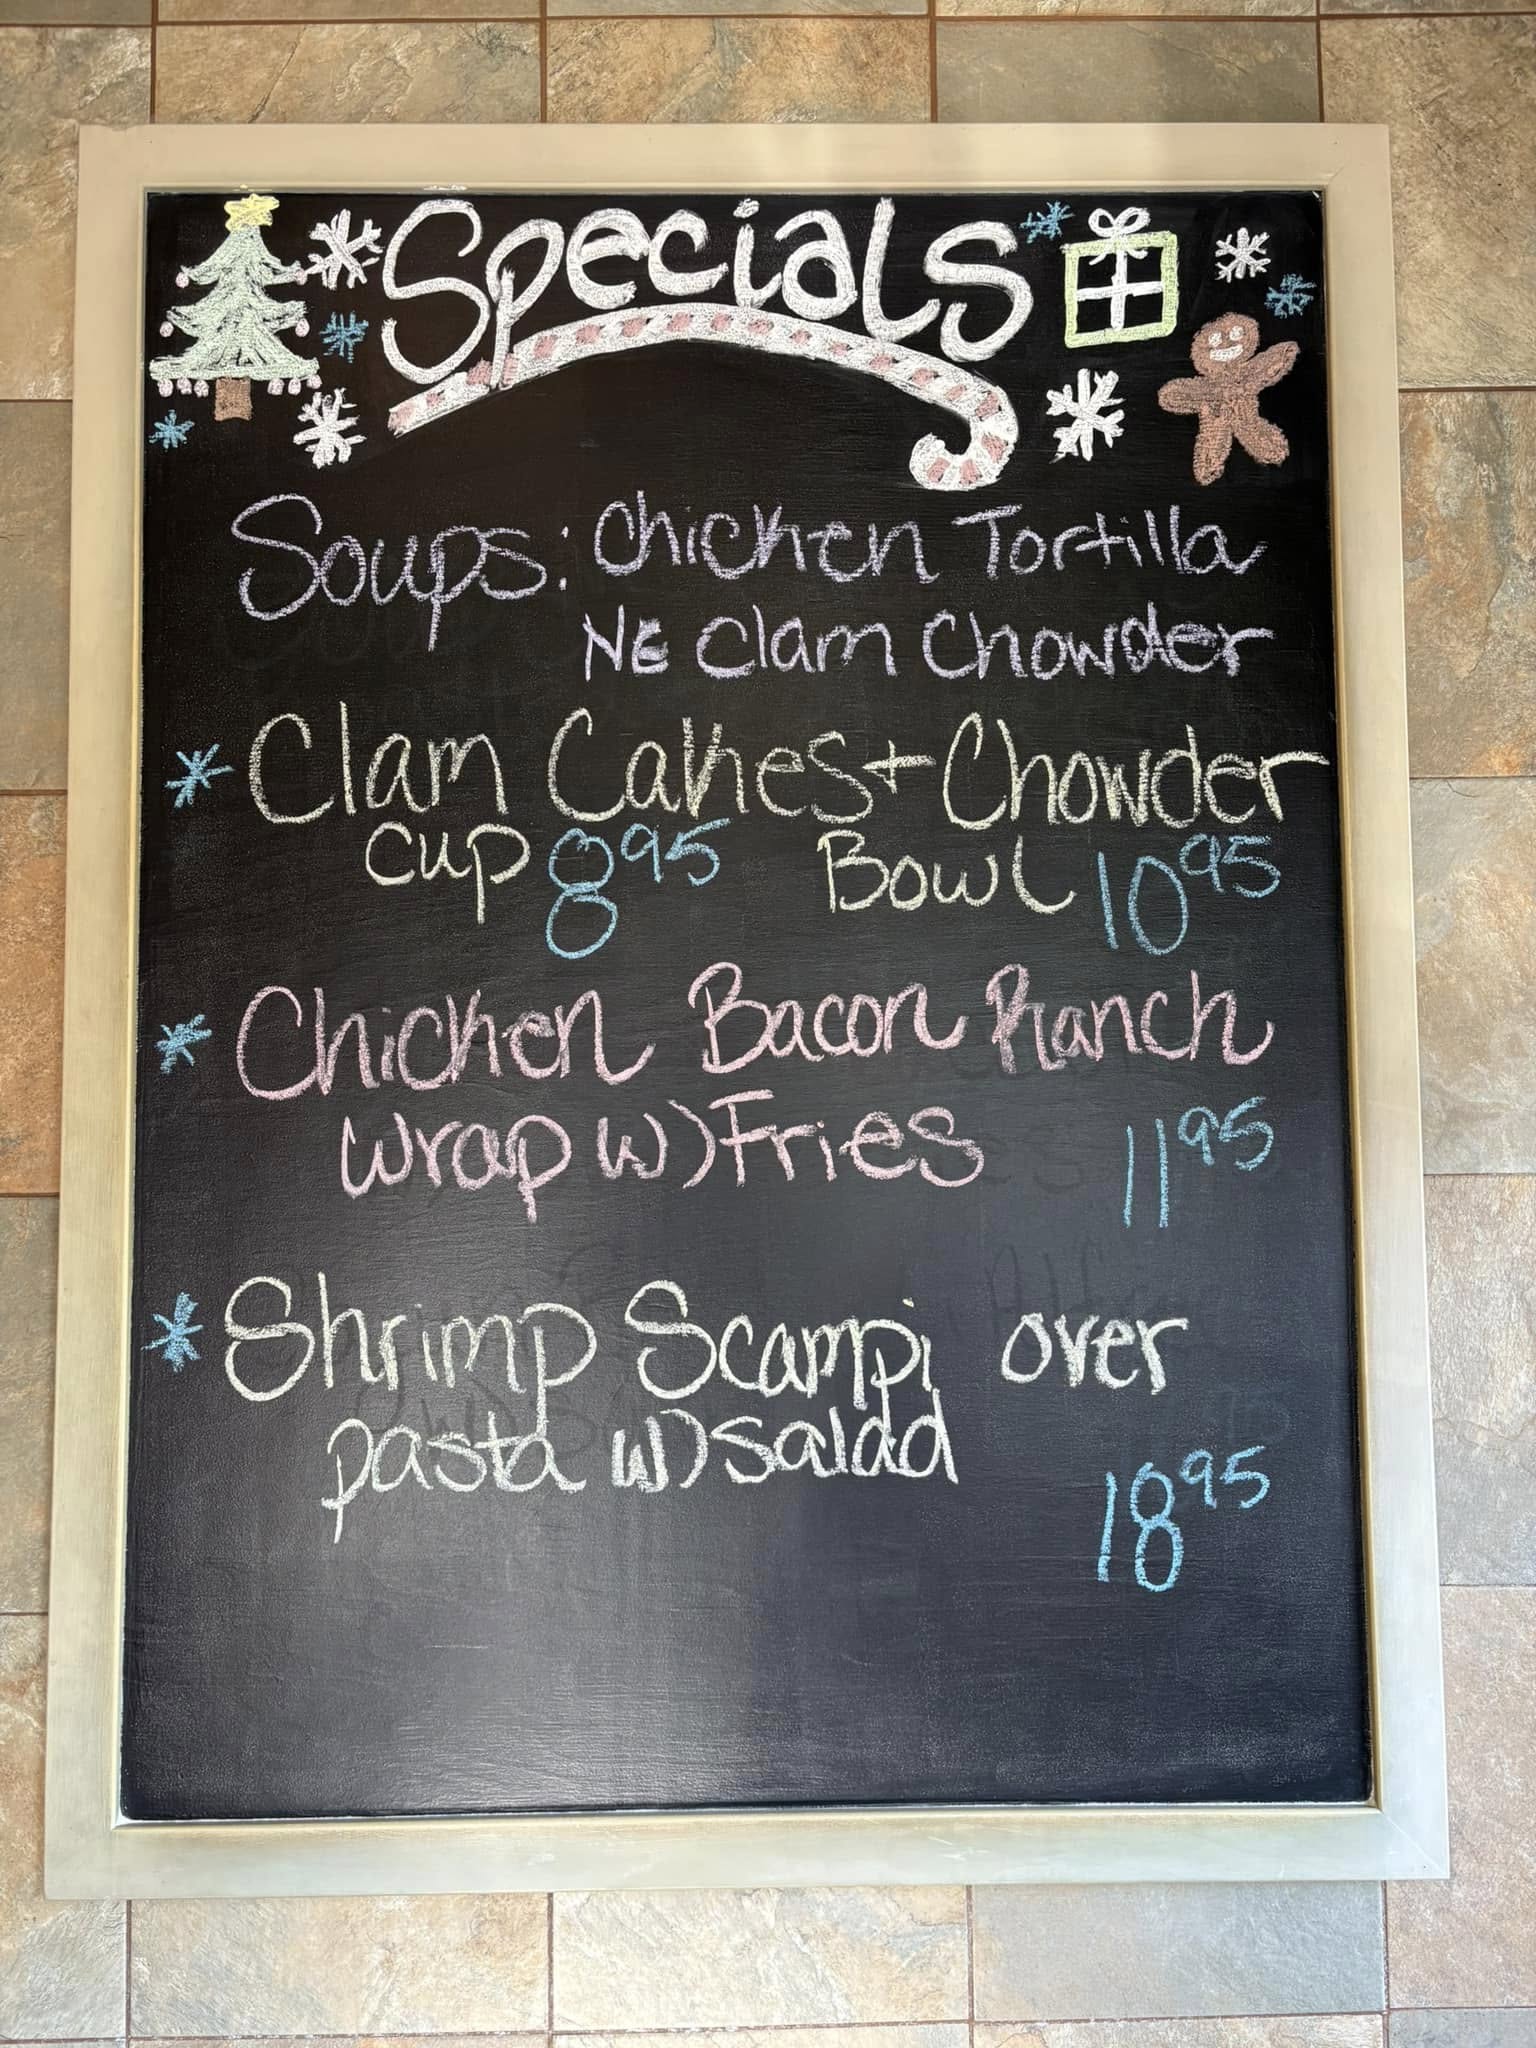 Specials
Soups: Chicken Tortilla
NE Clam Chowder
* Clam Cakes + Chowder
cup 8 95 Bowl 10 95
* Chicken Bacon Ranch
wrap w) Fries 11 95
* Shrimp Scampi over
pasta w) salad
18 95